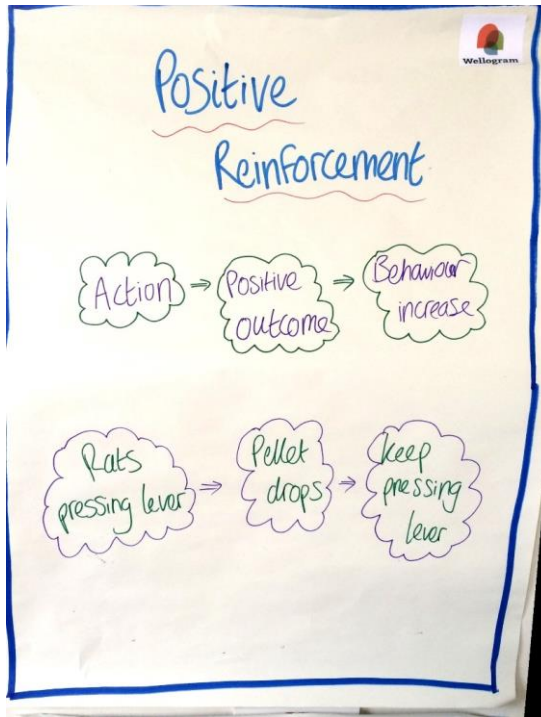 Wellogram
Positive
Reinforcement
Action ⇒ Positive outcome ⇒ Behaviour increase
Rats pressing lever ⇒ Pellet drops ⇒ keep pressing lever